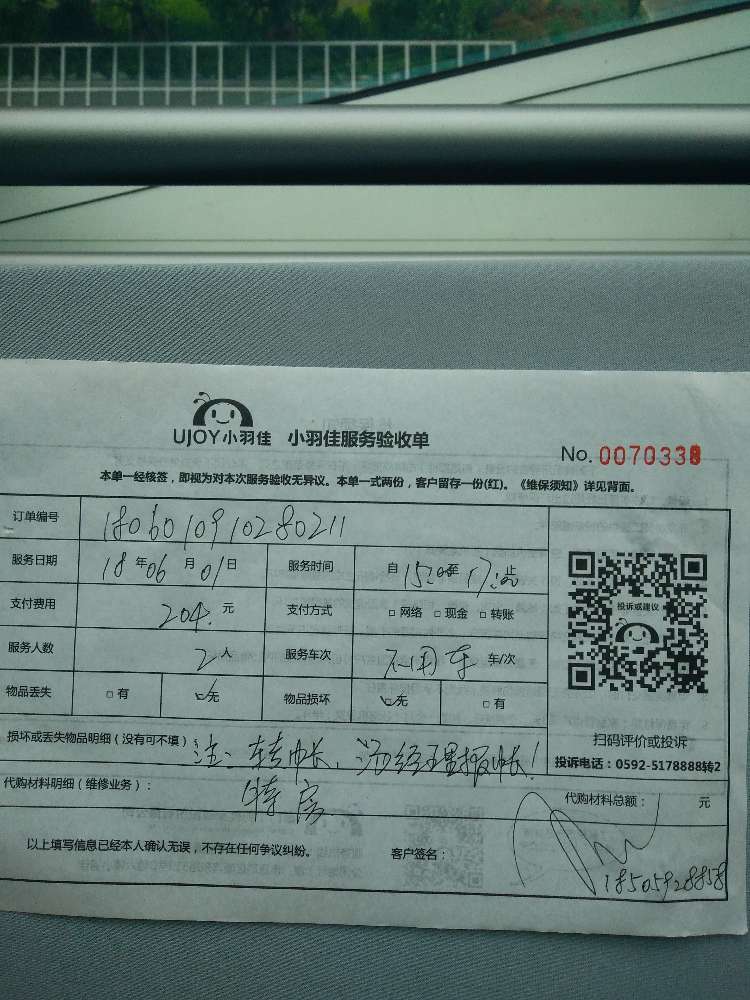 UJOY小羽佳 小羽佳服务验收单
No. 0070338
本单一经核签，即视为对本次服务验收无异议。本单一式两份，客户留存一份(红)。《维保须知》详见背面。
订单编号 1806010910280211
服务日期 18年06月01日 服务时间 自15:00至17:00止
支付费用 204.元 支付方式 □网络 □现金 □转账
服务人数 2人 服务车次 不用车 车/次
物品丢失 □有 ☑无 物品损坏 ☑无 □有
投诉或建议
扫码评价或投诉
投诉电话：0592-5178888转2
损坏或丢失物品明细（没有可不填）： 注：转帐，汤经理报帐！
代购材料明细（维修业务）： 特房 代购材料总额： 元
以上填写信息已经本人确认无误，不存在任何争议纠纷。 客户签名：
18505928858